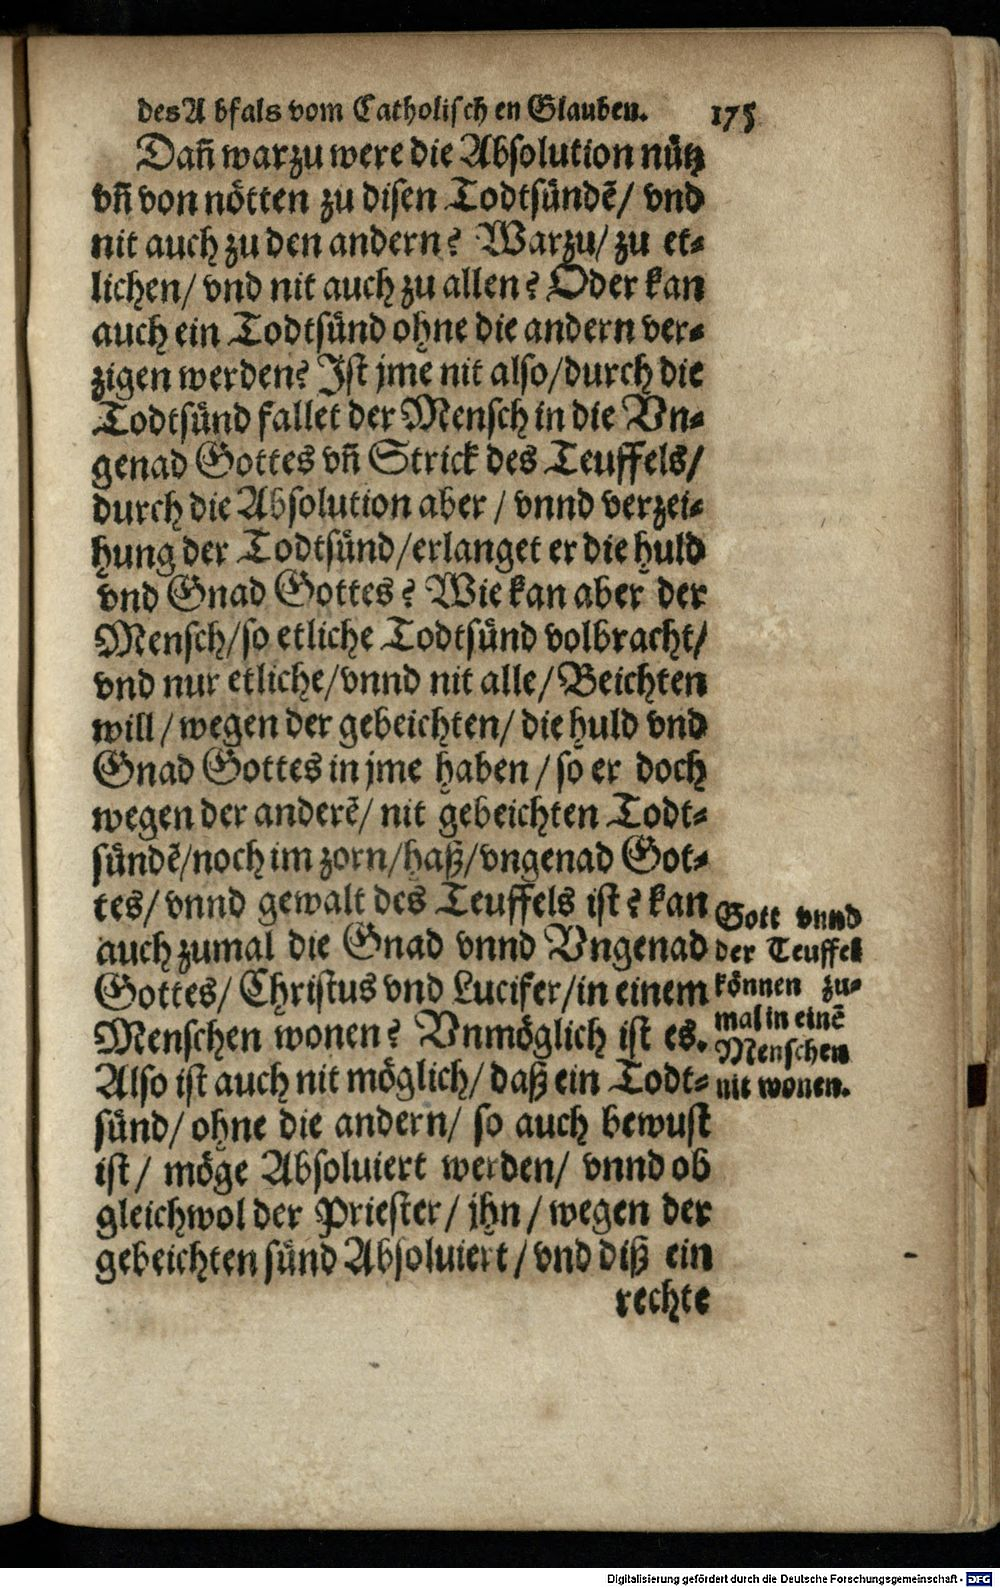 des A bfals vom Catholisch en Glauben. 175
Dañ warzu were die Absolution nütz
vñ von nötten zu disen Todtsündẽ/ vnd
nit auch zu den andern? Warzu/ zu et-
lichen/ vnd nit auch zu allen? Oder kan
auch ein Todtsünd ohne die andern ver-
zigen werden? Ist jme nit also/durch die
Todtsünd fallet der Mensch in die Vn-
genad Gottes vñ Strick des Teuffels/
durch die Absolution aber / vnnd verzei-
hung der Todtsünd/erlanget er die huld
vnd Gnad Gottes? Wie kan aber der
Mensch/so etliche Todtsünd volbracht/
vnd nur etliche/vnnd nit alle/Beichten
will / wegen der gebeichten/ die huld vnd
Gnad Gottes in jme haben / so er doch
wegen der anderẽ/ nit gebeichten Todt-
sündẽ/noch im zorn/haß/vngenad Got-
tes/ vnnd gewalt des Teuffels ist? kan
auch zumal die Gnad vnnd Vngenad
Gottes/ Christus vnd Lucifer/in einem
Menschen wonen? Vnmöglich ist es.
Also ist auch nit möglich/ daß ein Todt-
sünd/ ohne die andern/ so auch bewust
ist/ möge Absoluiert werden/ vnnd ob
gleichwol der Priester/ jhn/ wegen der
gebeichten sünd Absoluiert/ vnd diß ein
rechte
Gott vnnd
der Teuffel
können zu-
mal in einẽ
Menschen
nit wonen.
Digitalisierung gefördert durch die Deutsche Forschungsgemeinschaft - DFG